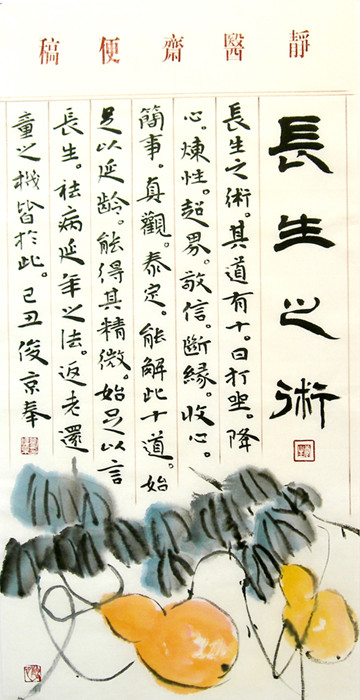 靜醫齋便稿
長生之術
長生之術。其道有十。曰打坐。降
心。煉性。超界。敬信。斷緣。收心。
簡事。真觀。泰定。能解此十道。始
足以延齡。能得其精微。始足以言
長生。祛病延年之法。返老還
童之機皆於此。己丑俊京奉